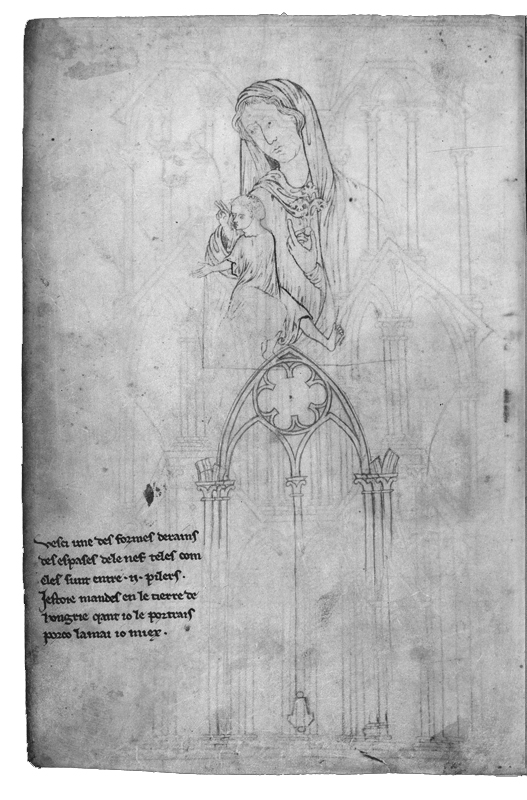 vesci une des formes de rains
des espases dele nef teles com
eles sunt entre ·ii· pilers·
Jestoie mandes en le tierre de
hongrie qant io le portrais
por co lamai io miex·